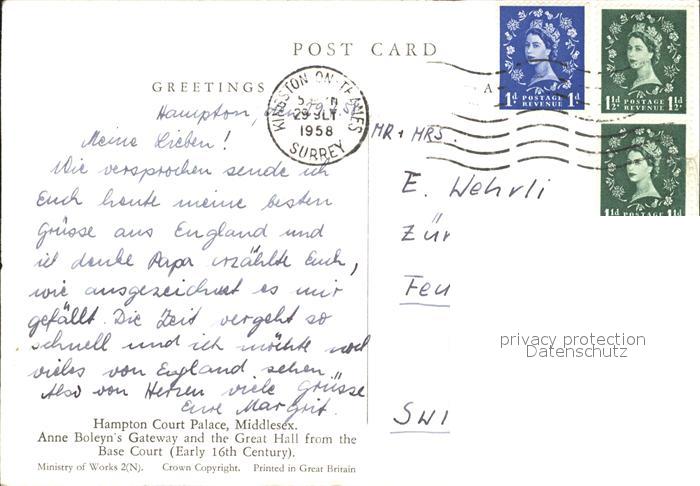 POST CARD
GREETINGS
A
KINGSTON-ON-THAMES
29 JLY
1958
SURREY
1d POSTAGE REVENUE 1d
1½d POSTAGE REVENUE 1½d
1½d POSTAGE REVENUE 1½d
Hampton, den 29.
Meine Lieben!
Wie versprochen sende ich
Euch heute meine besten
Grüsse aus England und
ich denke Papa erzählte Euch,
wie ausgezeichnet es mir
gefällt. Die Zeit vergeht so
schnell und ich möchte noch
vieles von England sehen.
Also von Herzen viele Grüsse
Eure Margrit.
MR + MRS.
E. Wehrli
Zür
Feu
SWI
privacy protection
Datenschutz
Hampton Court Palace, Middlesex.
Anne Boleyn's Gateway and the Great Hall from the
Base Court (Early 16th Century).
Ministry of Works 2(N). Crown Copyright. Printed in Great Britain